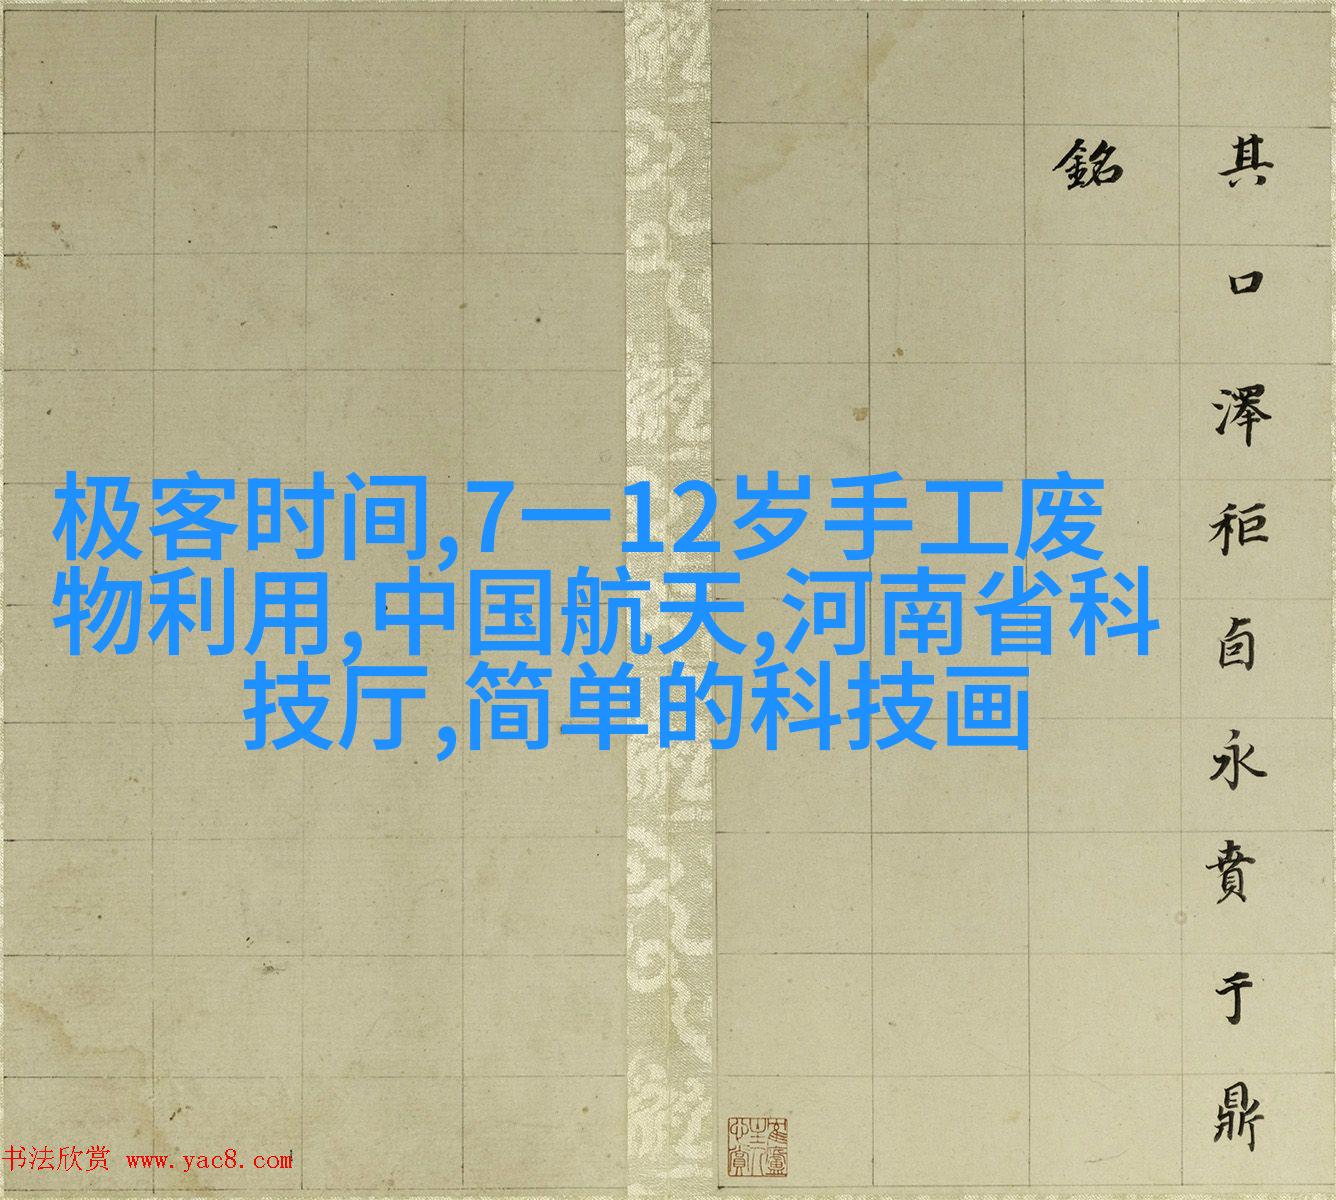 其口澤秬卣永賁于鼎
銘
极客时间,7一12岁手工废
物利用,中国航天,河南省科
技厅,简单的科技画
书法欣赏 www.yac8.com